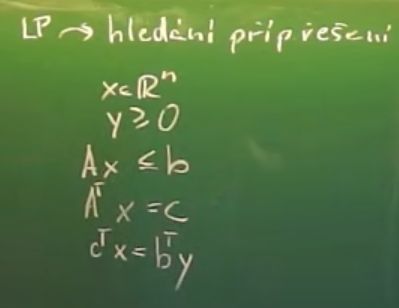 LP → hledání příp řešení
x∈ℝⁿ
y ≥ 0
Ax ≤ b
Aᵀx = c
cᵀx = bᵀy